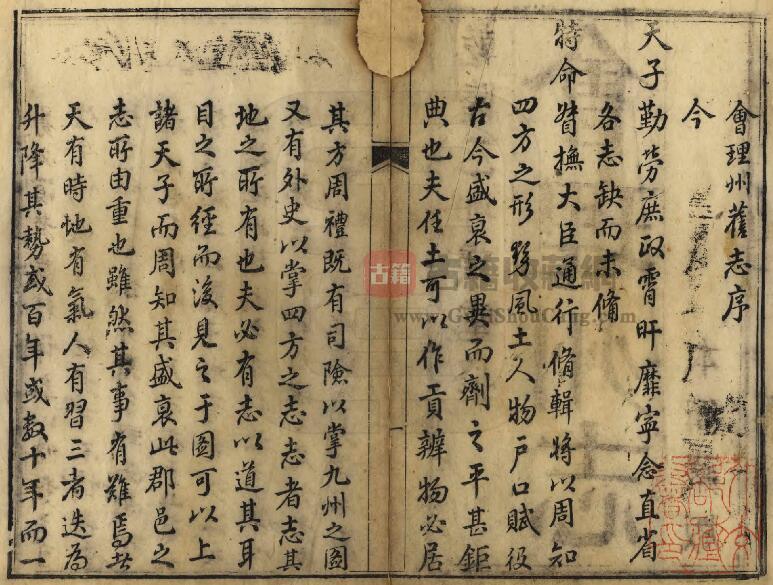 會理州舊志序
今
天子勤勞庶政宵旰靡寧念直省
各志缺而未脩
特命督撫大臣通行脩輯將以周知
四方之形勢風土人物戶口賦役
古今盛衰之異而劑之平甚鉅
典也夫任土可以作貢辨物必居
其方周禮既有司險以掌九州之圖
又有外史以掌四方之志志者志其
地之所有也夫必有志以道其耳
目之所經而後見之于圖可以上
諸天子而周知其盛衰此郡邑之
志所由重也雖然其事有難焉者
天有時地有氣人有習三者迭為
升降其勢或百年或數十年而一
古籍
古籍收藏網
www.GuJiShouCang.com